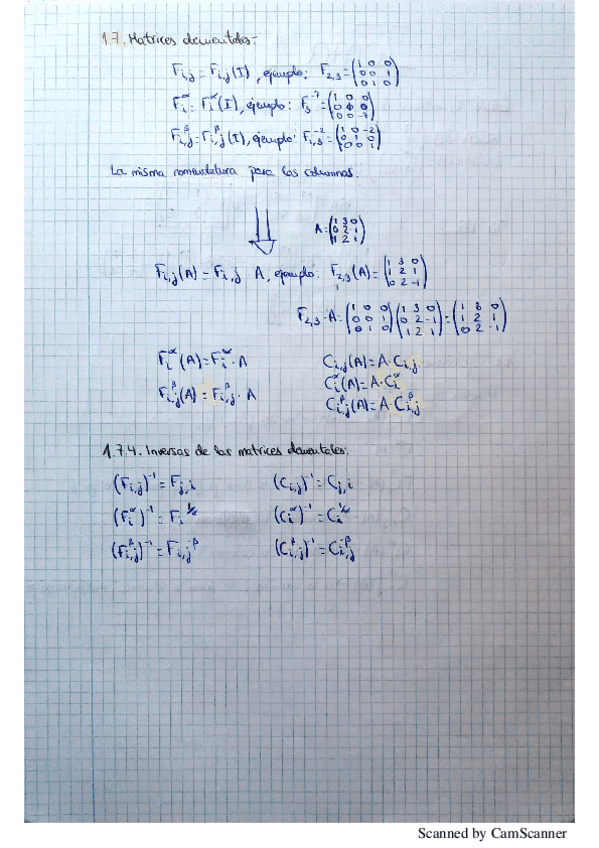 1.7. Matrices elementales:
F_{i,j} = F_{i,j}(I), ejemplo: F_{2,3} = (1 0 0; 0 0 1; 0 1 0)
F_i^α = F_i^α(I), ejemplo: F_3^{-7} = (1 0 0; 0 0 0; 0 0 -7)
F_{i,j}^β = F_{i,j}^β(I), ejemplo: F_{1,3}^{-2} = (1 0 -2; 0 1 0; 0 0 1)
La misma nomenclatura para las columnas.
A = (1 3 0; 0 2 -1; 1 2 1)
F_{i,j}(A) = F_{i,j} A, ejemplo: F_{2,3}(A) = (1 3 0; 1 2 1; 0 2 -1)
F_{2,3}·A = (1 0 0; 0 0 1; 0 1 0)(1 3 0; 0 2 -1; 1 2 1) = (1 3 0; 1 2 1; 0 2 -1)
F_i^α(A) = F_i^α · A C_{i,j}(A) = A·C_{i,j}
C_i^α(A) = A·C_i^α
F_{i,j}^β(A) = F_{i,j}^β · A C_{i,j}^β(A) = A·C_{i,j}^β
1.7.4. Inversas de las matrices elementales:
(F_{i,j})^{-1} = F_{j,i} (C_{i,j})^{-1} = C_{j,i}
(F_i^α)^{-1} = F_i^{1/α} (C_i^α)^{-1} = C_i^{1/α}
(F_{i,j}^β)^{-1} = F_{i,j}^{-β} (C_{i,j}^β)^{-1} = C_{i,j}^{-β}
Scanned by CamScanner